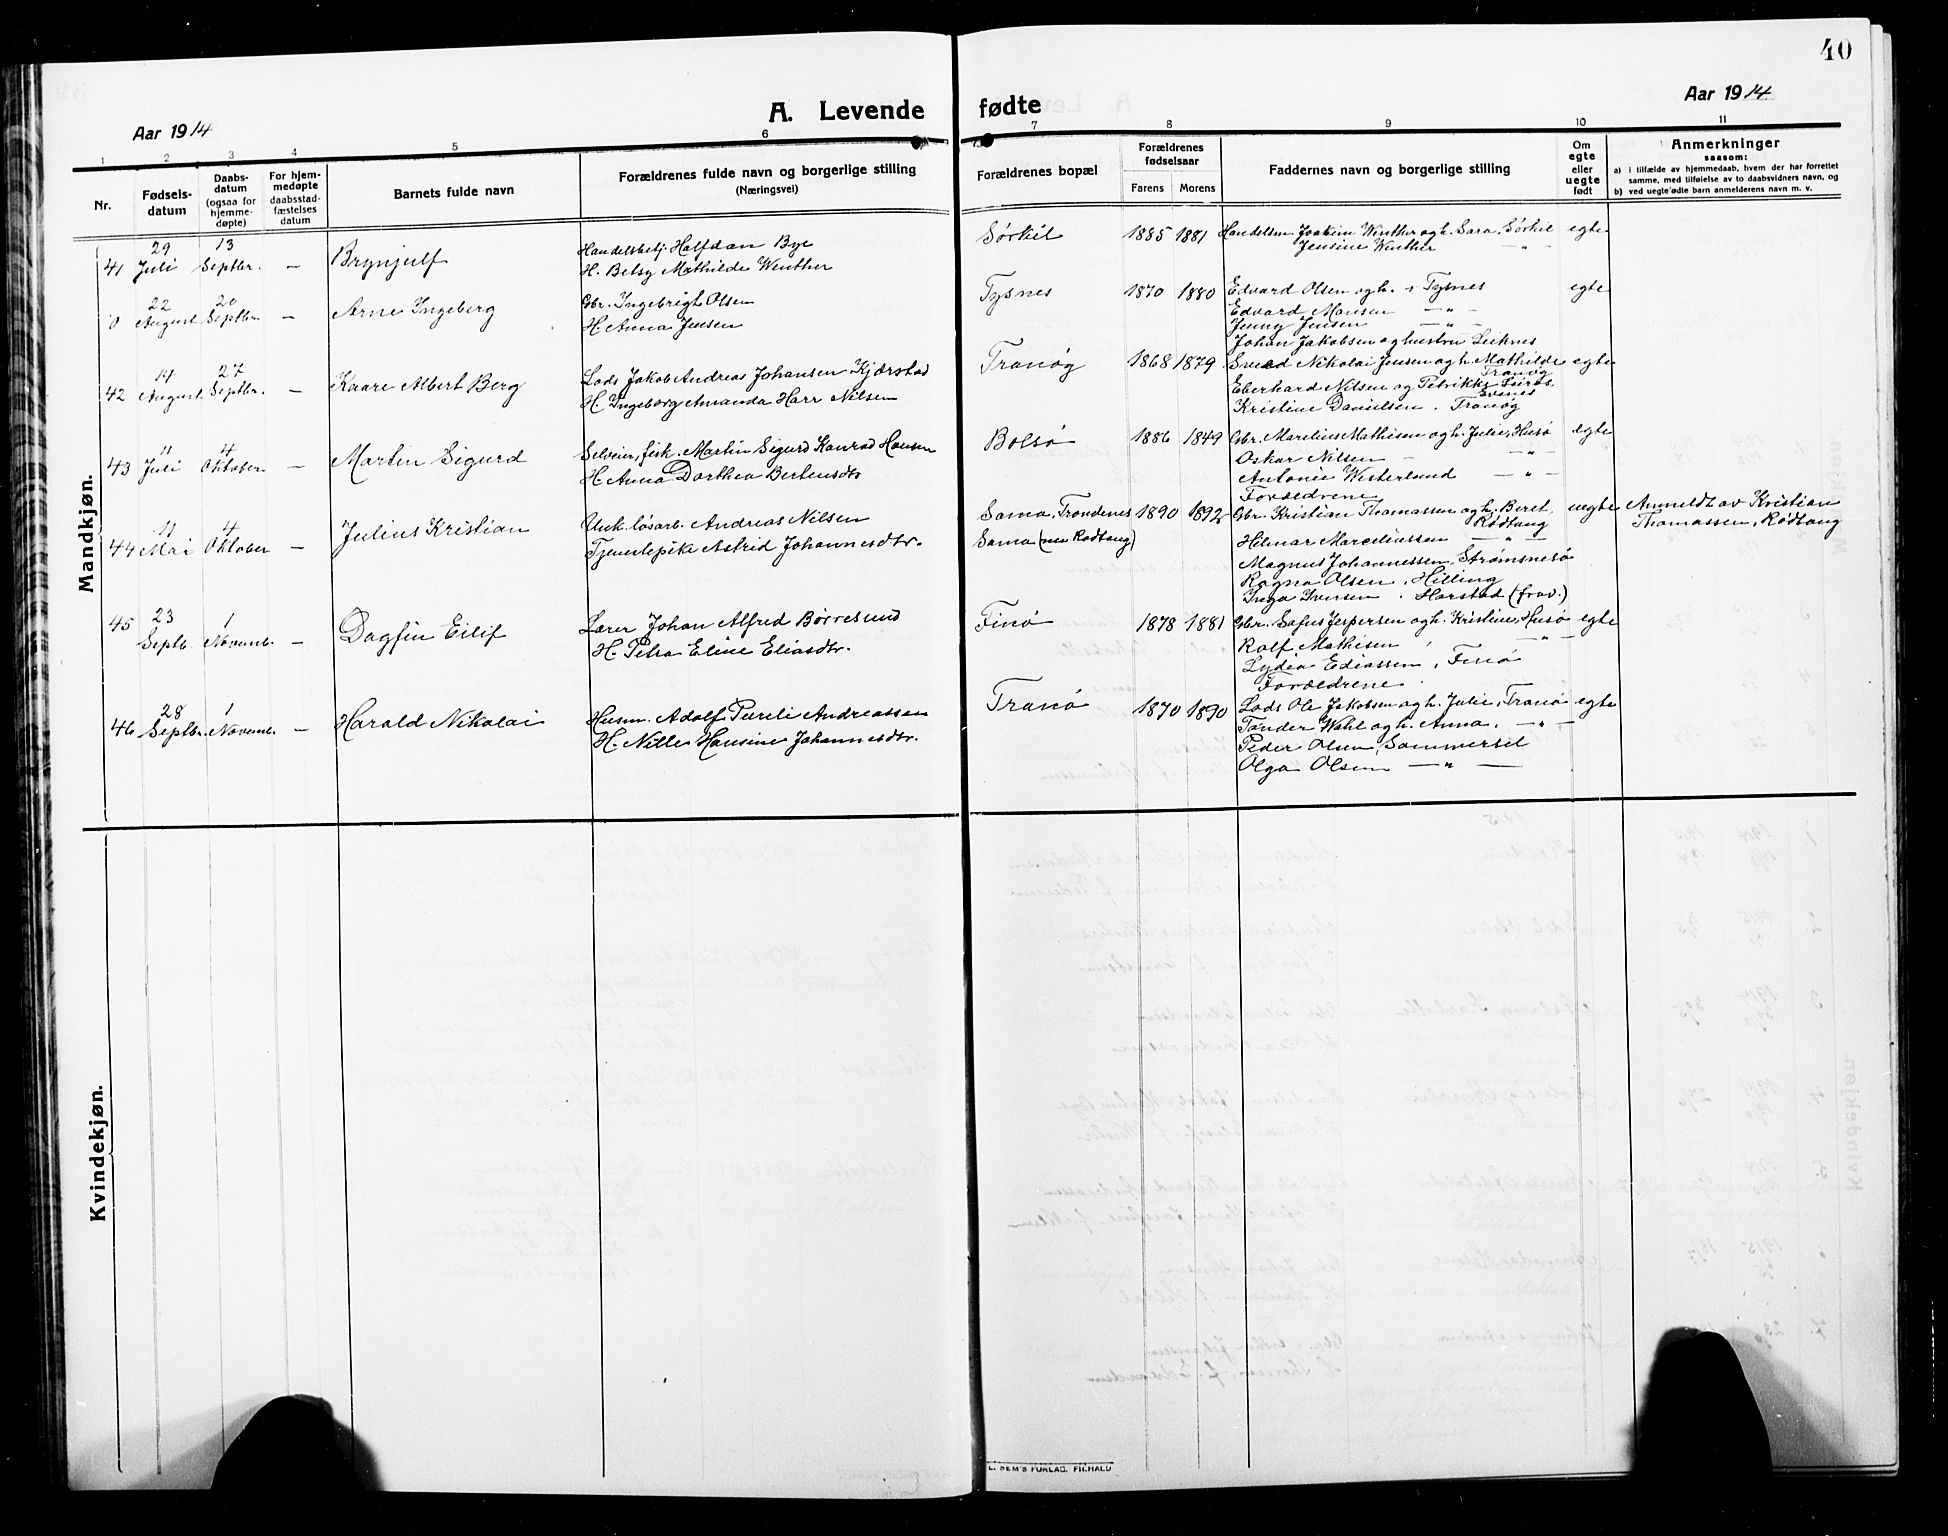 40
Aar 1914
A. Levende fødte
Aar 1914
1 2 3 4 5 6 7 8 9 10 11
Nr.
Fødsels-
datum
Daabs-
datum
(ogsaa for
hjemme-
døpte)
For hjem-
medøpte
daabsstad-
fæstelses
datum
Barnets fulde navn
Forældrenes fulde navn og borgerlige stilling
(Næringsvei)
Forældrenes bopæl
Forældrenes
fødselsaar
Farens Morens
Faddernes navn og borgerlige stilling
Om
egte
eller
uegte
født
Anmerkninger
saasom:
a) i tilfælde av hjemmedaab, hvem der har forrettet
samme, med tilføielse av to daabsvidners navn, og
b) ved uegte fødte barn anmelderens navn m. v.
Mandkjøn.
41
29
Juli
13
Septbr.
—
Brynjulf
Handelsbetj. Halfdan Bye
H. Betsy Mathilde Winther
Sørkil
1885 1881
Handelsm. Joakim Winther og h. Sara, Sørkil
Jensine Winther — " —
egte
0
22
August
20
Septbr.
—
Arne Ingeberg
Gbr. Ingebrigt Olsen
H. Anna Jensen
Tysnes
1870 1880
Edvard Olsen og h. Tysnes
Edvard Monsen — " —
Jenny Jensen — " —
Johan Jakobsen og hustru Leiknes
egte
42
14
August
27
Septbr.
—
Kaare Albert Berg
Lods Jakob Andreas Johansen Kjærstad
H. Ingeborg Amanda Harr Nilsen
Tranøg
1868 1879
Nikolai Jensen og h. Mathilde
Tranøg
Eberhard Nilsen og Petrikke
Evenes
Kristine Danielsen. Tranøg
egte
43
11
Juli
4
Oktober
—
Martin Sigurd
Selveier, fisk. Martin Sigurd Konrad Hansen
H. Anna Dorthea Bertensdtr
Bolsø
1886 1849
Gbr. Marelius Mathisen og h. Julie, Husø
Oskar Nilsen — " —
Antonie Westerlund — " —
Forældrene
egte
44
11
Mai
4
Oktober
—
Julius Kristian
Unk. løsarb. Andreas Nilsen
Tjenestepike Astrid Johannesdtr.
Sama, Trondenes
Sama (nu Rødtang)
1890 1892
Gbr. Kristian Thomassen og h. Beret,
Rødtang
Hilmar Marceliussen — " —
Magnus Johannessen, Strømsnesø
Ragna Olsen, Hilling
Inga Iversen. Harstad (frav.)
uegte
Anmeldt av Kristian
Thomassen, Rødtang
45
23
Septb.
1
Novemb.
—
Dagfin Eilif
Lærer Johan Alfred Børresund
H. Petra Eline Eliasdtr.
Finø
1878 1881
Gbr. Sofus Jespersen og h. Kristine, Husø
Rolf Mathisen, — " —
Lydia Ediassen, Finø
Forældrene.
egte
46
28
Septbr.
1
Novemb.
—
Harald Nikolai
Husm. Adolf Pareli Andreassen
H. Nille Hansine Johannesdtr.
Tranø
1870 1890
Lods Ole Jakobsen og h. Julie, Tranø
Tønder Wahl og h. Anna, — " —
Peder Olsen, Sommersel
Olga Olsen — " —
egte
Kvindekjøn.
E. SEM'S FORLAG, F.HALD